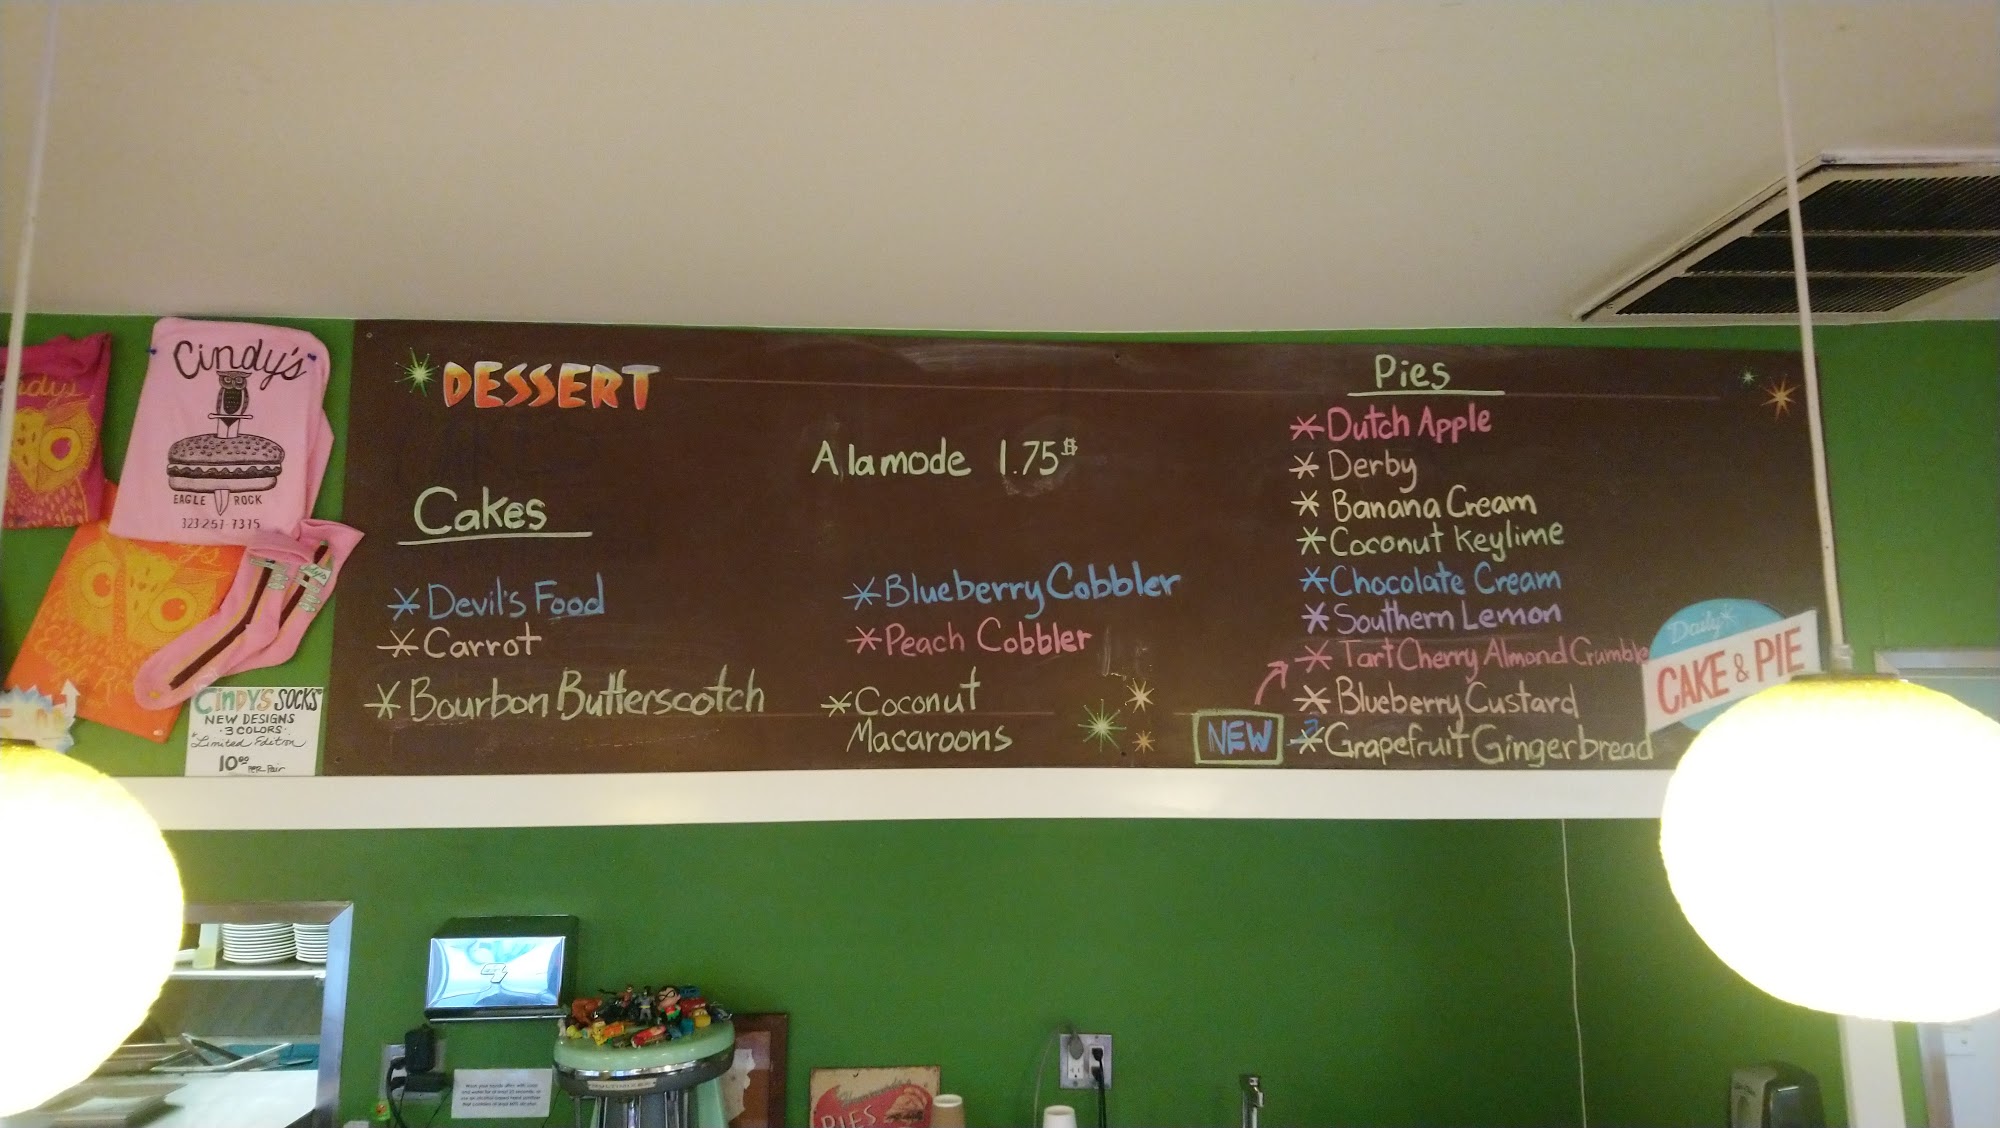 Cindy's
EAGLE ROCK
323·257·7375
CINDY'S SOCKS
NEW DESIGNS
·3 COLORS·
*Limited Edition
10.00 PER PAIR
DESSERT
Cakes
Devil's Food
Carrot
Bourbon Butterscotch
Alamode 1.75$
Blueberry Cobbler
Peach Cobbler
Coconut
Macaroons
Pies
Dutch Apple
Derby
Banana Cream
Coconut Keylime
Chocolate Cream
Southern Lemon
Tart Cherry Almond Crumble
Blueberry Custard
NEW
Grapefruit Gingerbread
Daily
CAKE & PIE
PIES